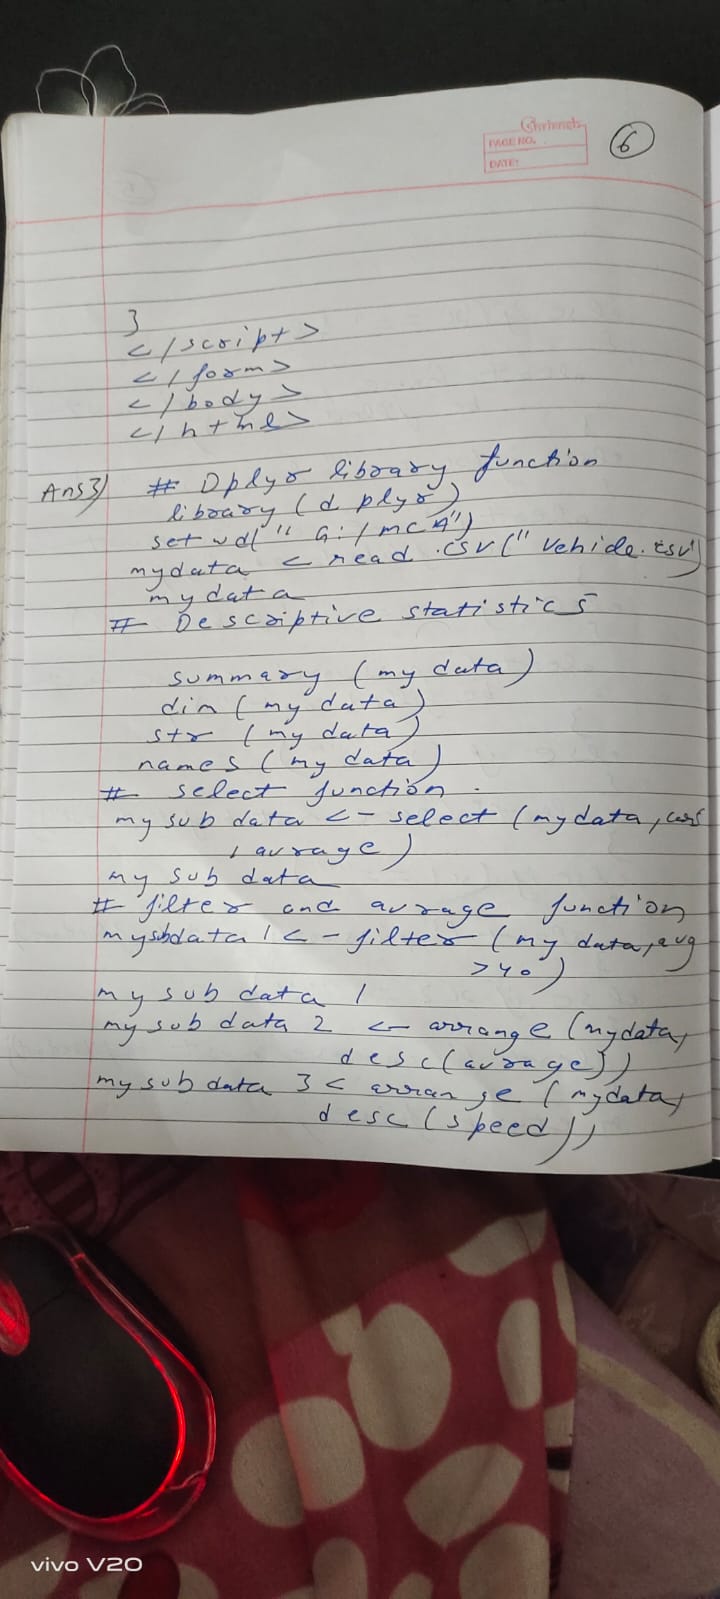 PAGE NO.
DATE:
6
}
</script>
</form>
</body>
</html>
Ans3) # Dplyr library function
library (dplyr)
setwd(" G:/mcA")
mydata < read .csv(" Vehicle.csv")
mydata
# Descriptive statistics
summary (my data)
dim (my data)
str (my data)
names (my data)
# select function
my sub data <- select (mydata,
, avrage)
my sub data
# filter and avrage function
mysubdata 1 <- filter (my data, avg
>40)
my sub data 1
my sub data 2 <- arrange (mydata,
desc(avrage))
my sub data 3 < arrange (mydata,
desc (speed))
vivo V20